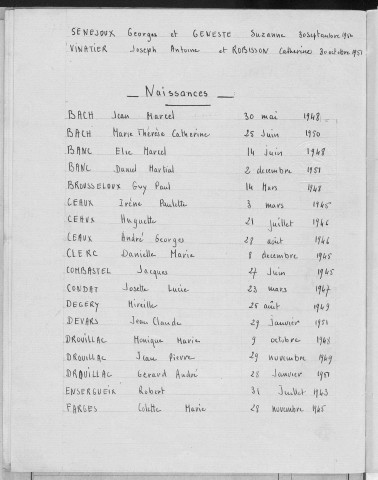 SENEJOUX Georges et GENESTE Suzanne 30 septembre
VINATIER Joseph Antoine et ROBISSON Catherine 20 octobre 1951
— Naissances —
BACH Jean Marcel 30 mai 1948
BACH Marie Thérèse Catherine 25 Juin 1950
BANC Elie Marcel 14 Juin 1948
BANC Daniel Martial 2 décembre 1951
BROUSSELOUX Guy Paul 14 Mars 1948
CEAUX Irène Paulette 3 mars 1945
CEAUX Huguette 21 juillet 1946
CEAUX André Georges 28 août 1946
CLERC Danielle Marie 8 décembre 1945
COMBASTEL Jacques 27 Juin 1945
CONDAT Josette Lucie 23 mars 1947
DEGERY Mireille 25 août 1949
DEVARS Jean Claude 29 Janvier 1951
DROUILLAC Monique Marie 9 octobre 1948
DROUILLAC Jean Pierre 29 novembre 1949
DROUILLAC Gérard André 28 Janvier 1951
ENSERGUEIX Robert 31 Juillet 1943
FARGES Colette Marie 28 novembre 1945